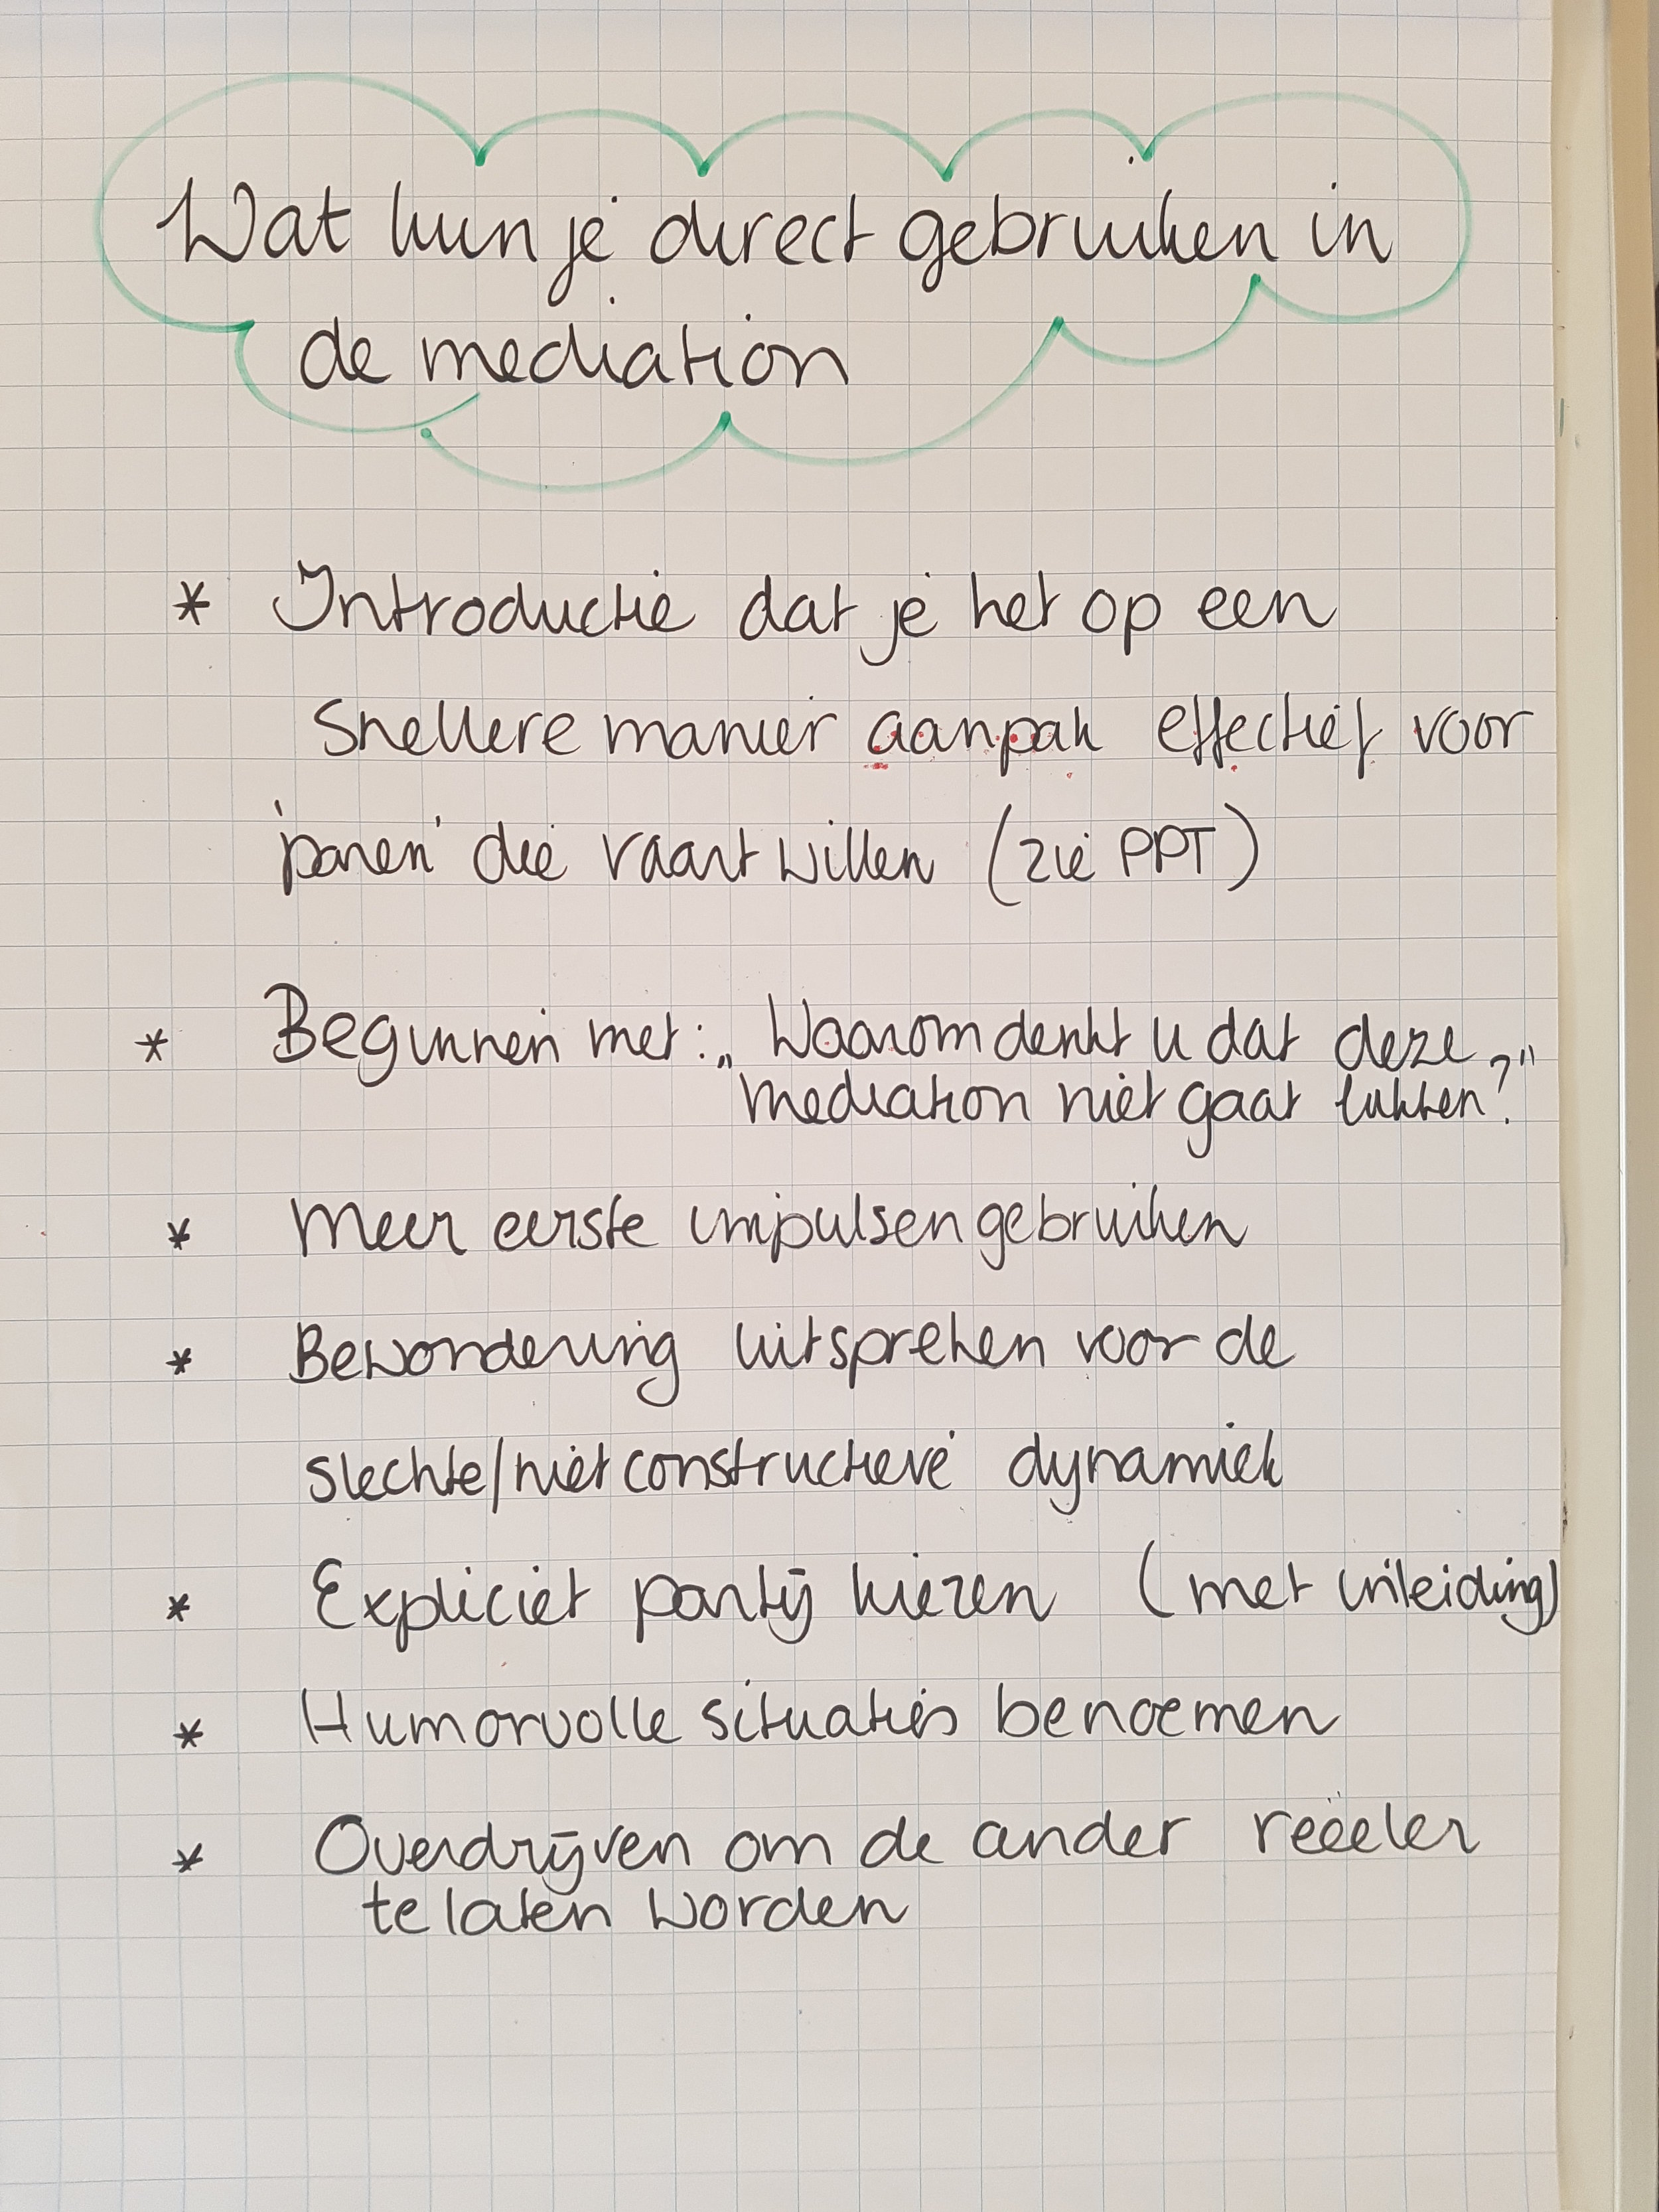 Wat kun je direct gebruiken in
de mediation
* Introductie dat je het op een
snellere manier aanpak effectief voor
'paren' die vaart willen (zie PPT)
* Beginnen met: „Waarom denkt u dat deze
mediation niet gaat lukken?"
* Meer eerste impulsen gebruiken
* Bewondering uitspreken voor de
slechte/niet constructieve dynamiek
* Expliciet partij kiezen (met inleiding)
* Humorvolle situaties benoemen
* Overdrijven om de ander reëeler
te laten worden